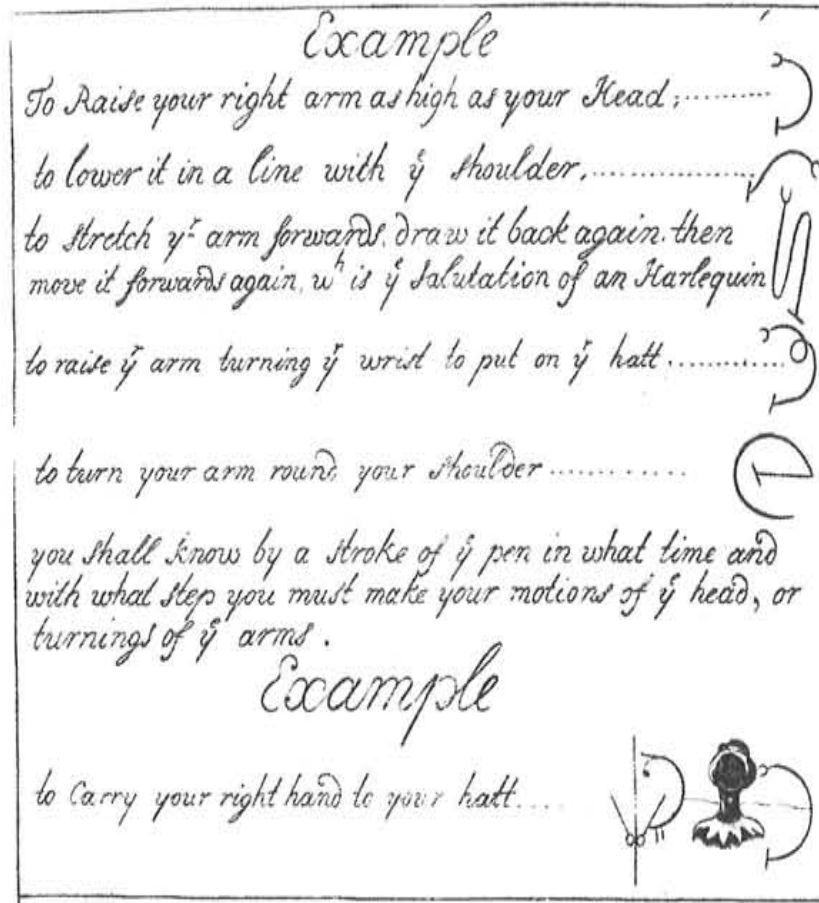 Example
To Raise your right arm as high as your Head,
to lower it in a line with yͤ shoulder,
to stretch yʳ arm forwards, draw it back again, then
move it forwards again, wʰ is yͤ Salutation of an Harlequin
to raise yͤ arm turning yͤ wrist to put on yͤ hatt
to turn your arm round your shoulder
you shall know by a stroke of yͤ pen in what time and
with what step you must make your motions of yͤ head, or
turnings of yͤ arms.
Example
to Carry your right hand to your hatt